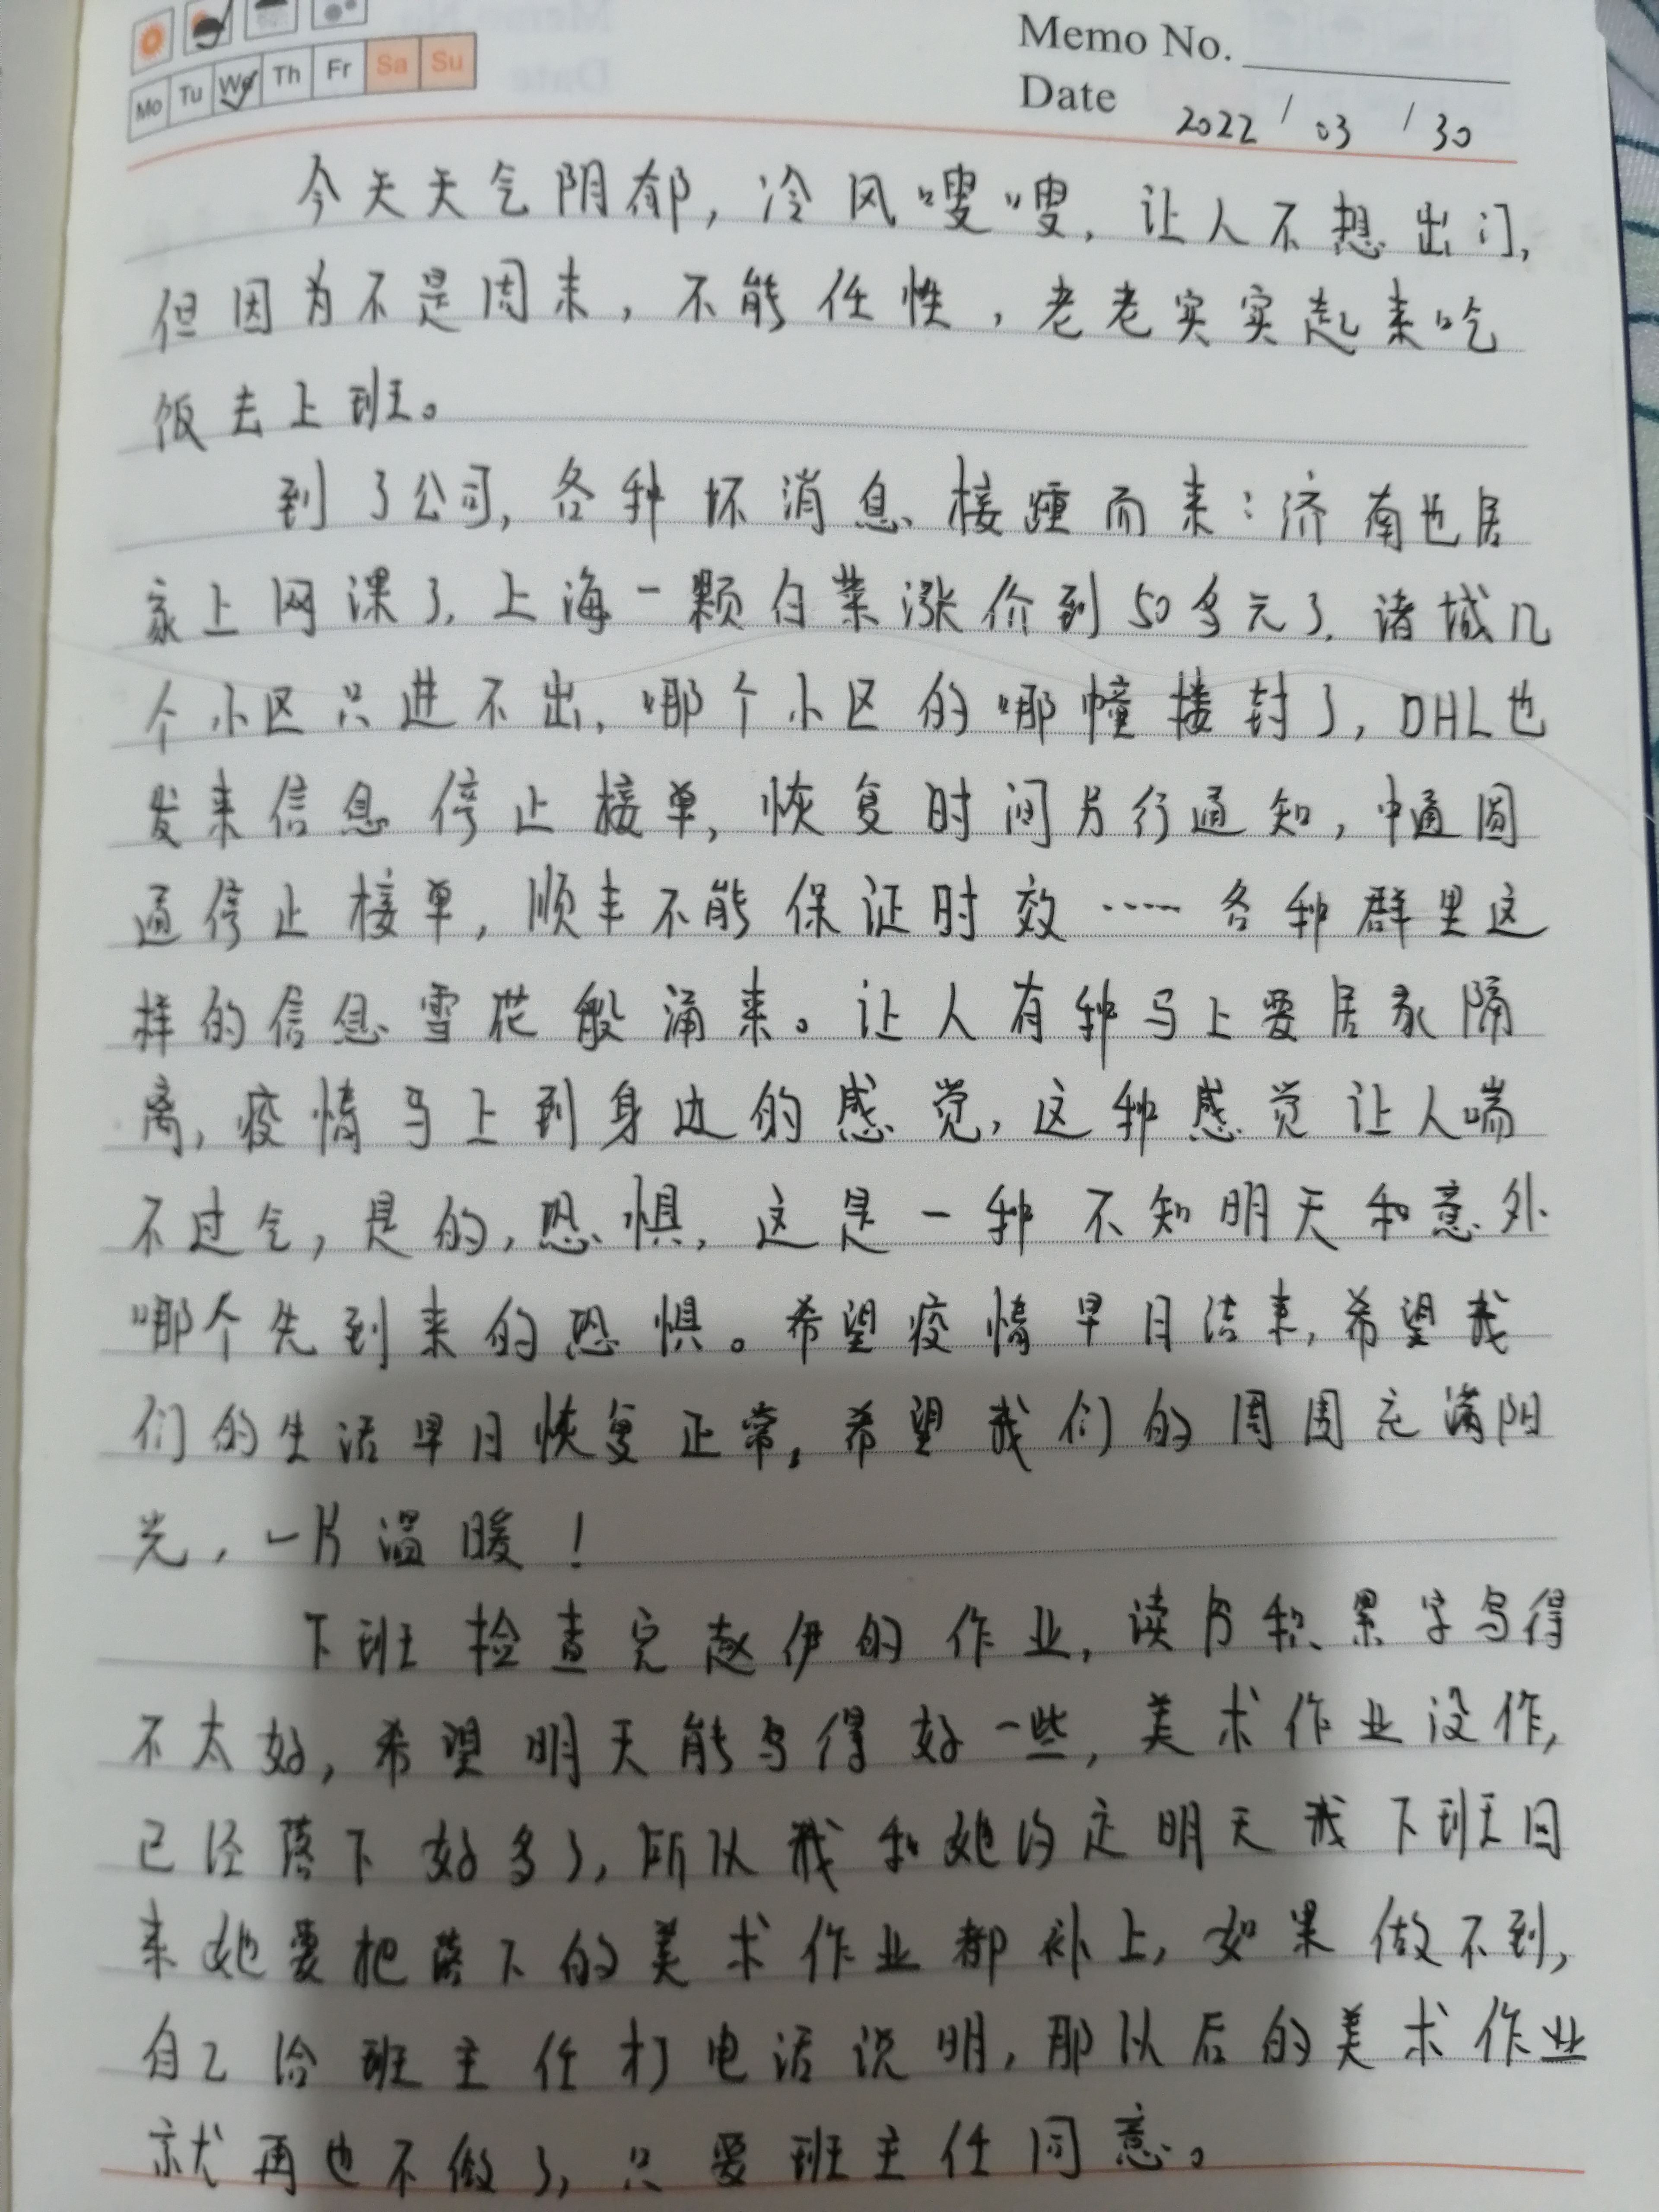 Mo Tu We Th Fr Sa Su
Memo No.
Date 2022/03/30
今天天气阴郁，冷风嗖嗖，让人不想出门，
但因为不是周末，不能任性，老老实实起来吃
饭去上班。
到了公司，各种坏消息接踵而来：济南也居
家上网课了，上海一颗白菜涨价到50多元了，诸城几
个小区只进不出，哪个小区的哪幢楼封了，DHL也
发来信息停止接单，恢复时间另行通知，中通圆
通停止接单，顺丰不能保证时效……各种群里这
样的信息雪花般涌来。让人有种马上要居家隔
离，疫情马上到身边的感觉，这种感觉让人喘
不过气，是的，恐惧，这是一种不知明天和意外
哪个先到来的恐惧。希望疫情早日结束，希望我
们的生活早日恢复正常，希望我们的周围充满阳
光，一片温暖！
下班检查完赵伊的作业，读书积累字写得
不太好，希望明天能写得好一些，美术作业没作，
已经落下好多了，所以我和她约定明天我下班回
来她要把落下的美术作业都补上，如果做不到，
自己给班主任打电话说明，那以后的美术作业
就再也不做了，只要班主任同意。